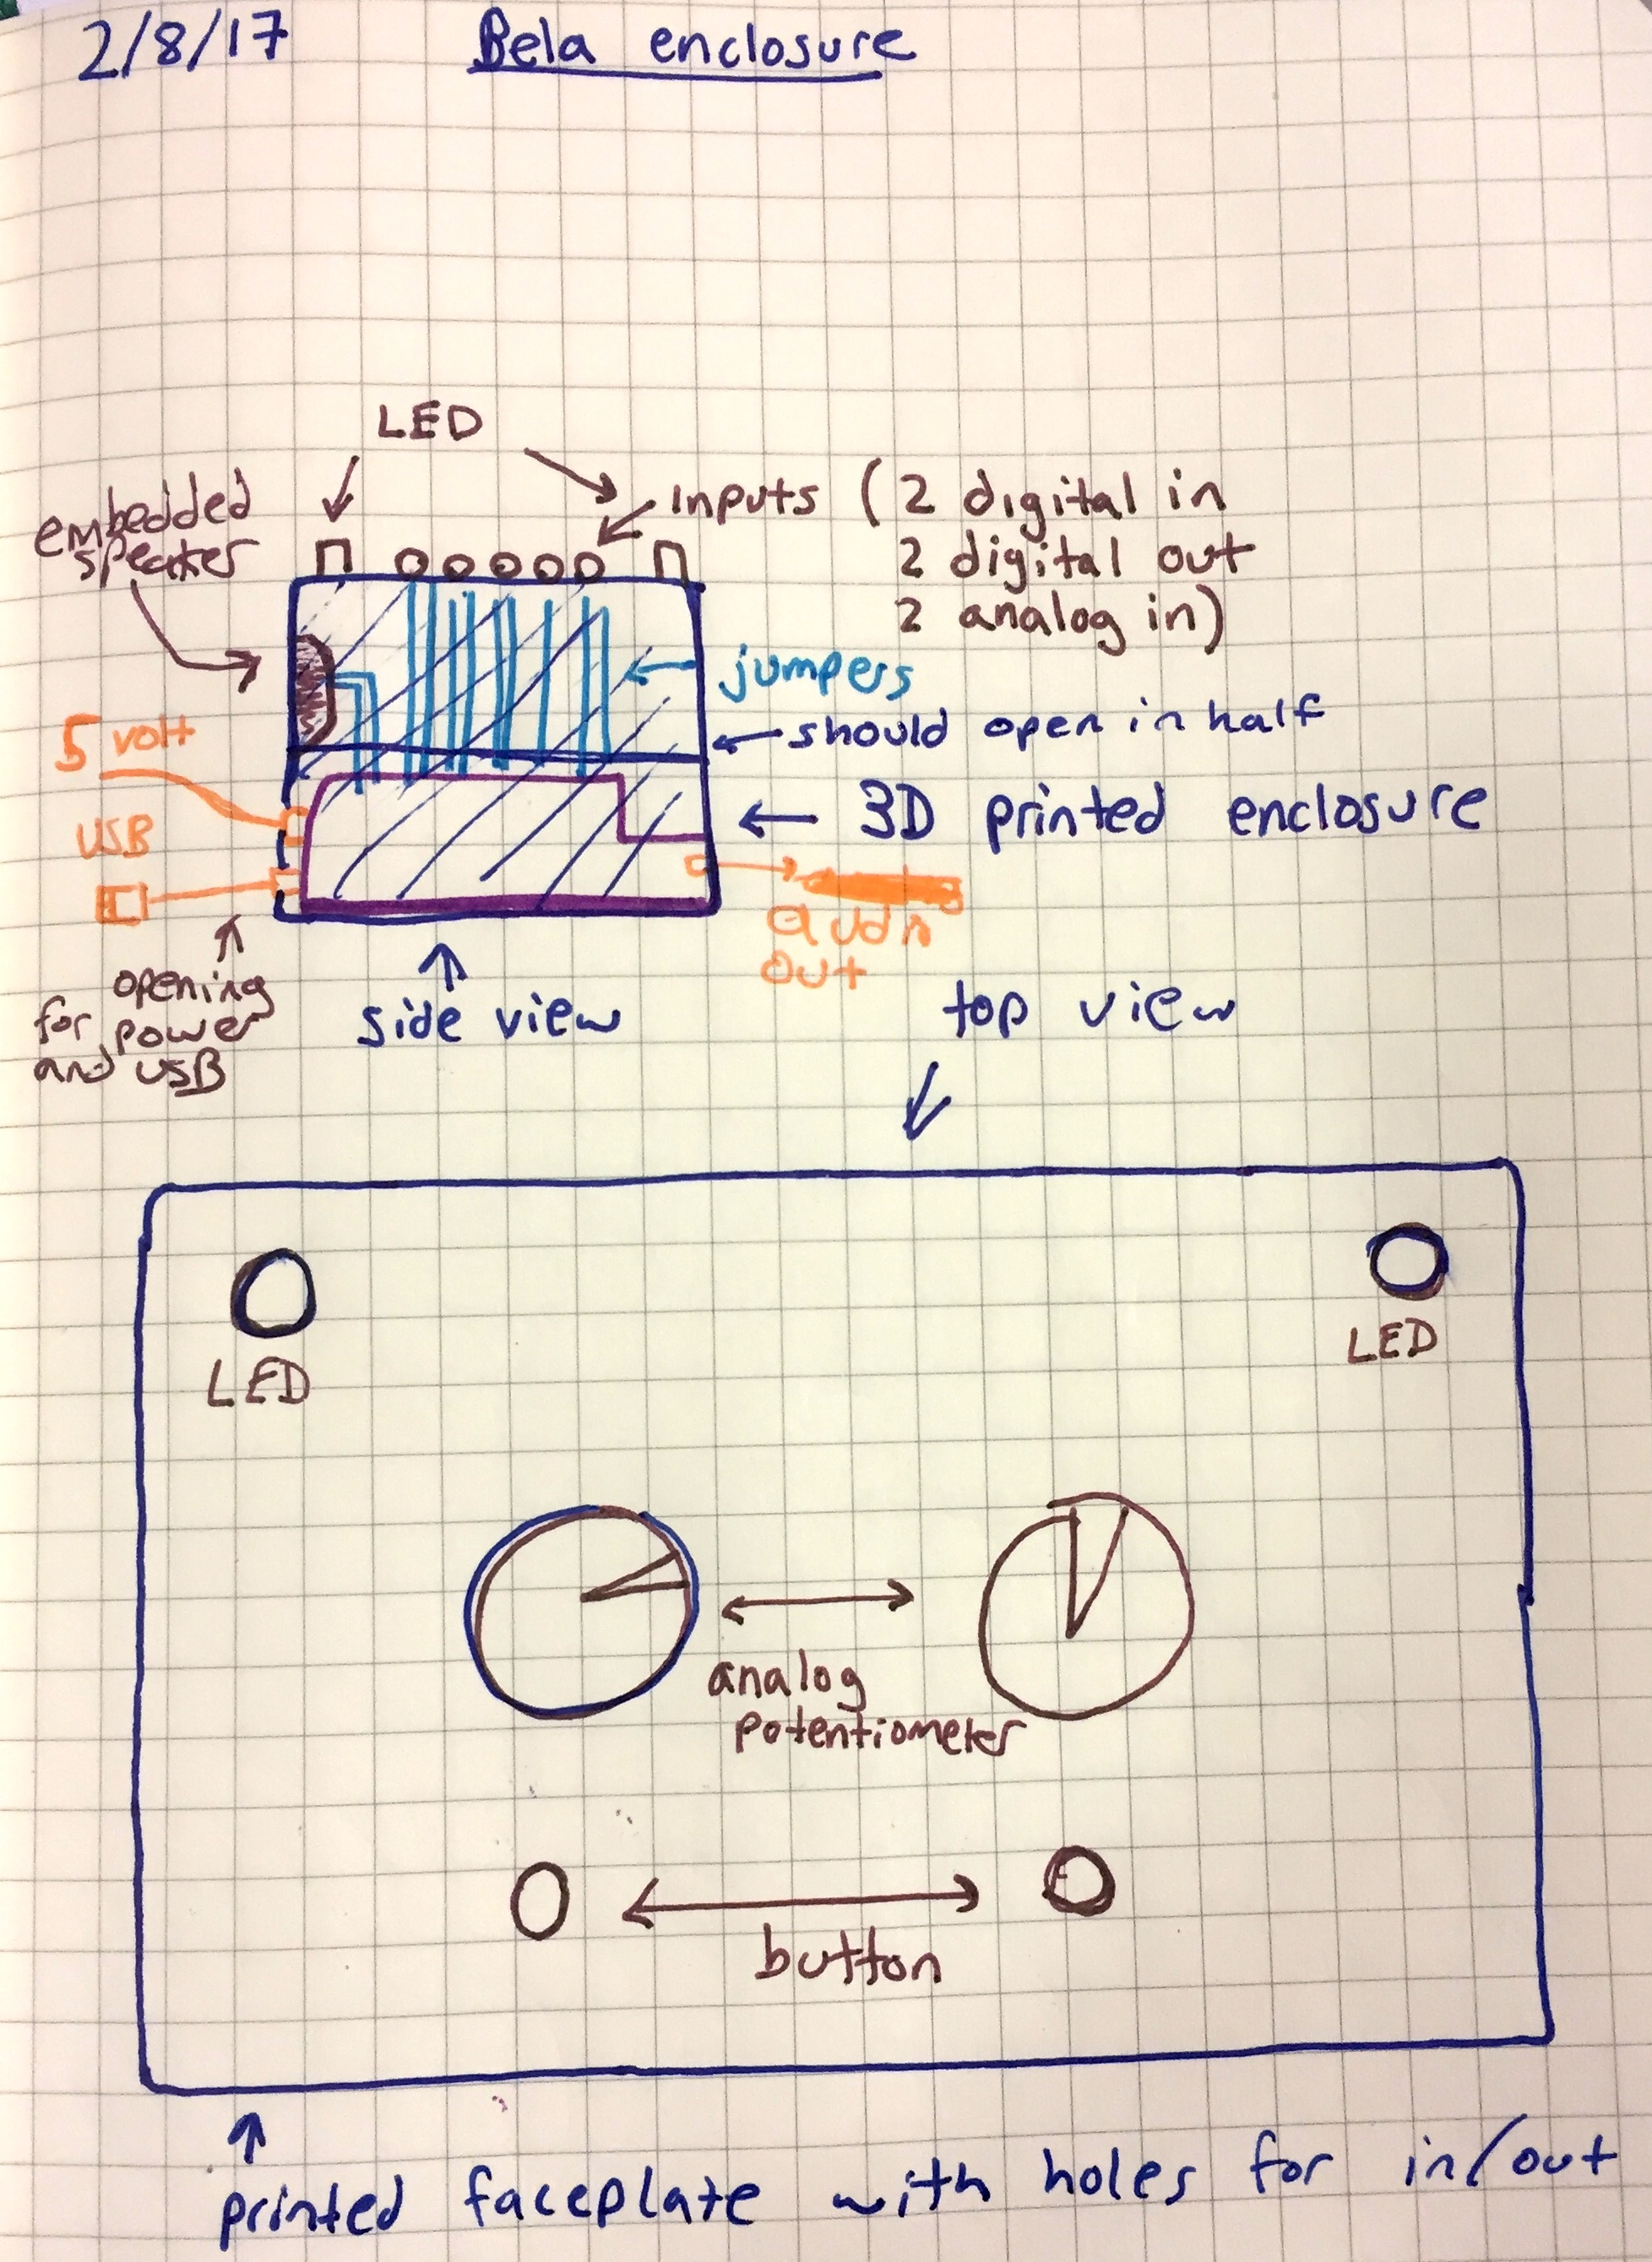 2/8/17 Bela enclosure
LED
embedded
speaker
Inputs (2 digital in
2 digital out
2 analog in)
jumpers
should open in half
5 volt
USB
3D printed enclosure
audio
out
opening
for power
and USB
side view
top view
LED
LED
analog
potentiometer
button
printed faceplate with holes for in/out